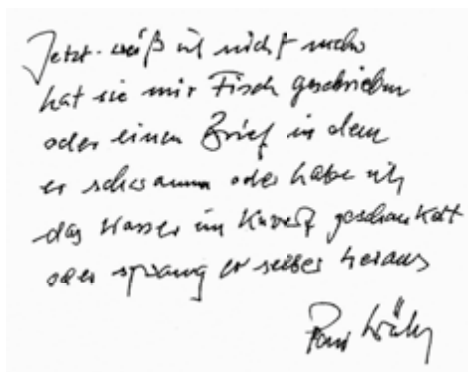 Jetzt weiß ich nicht mehr
hat sie mir Fisch geschrieben
oder einen Brief in dem
er schwamm oder habe ich
das Wasser im Kuvert geschaukelt
oder sprang er selber heraus